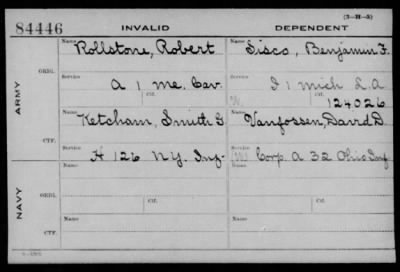 (3-H-5)
84446 INVALID DEPENDENT
Name Rollstone, Robert Name Sisco, Benjamin F.
ORIG.
Service Service
A 1 Me. Cav. I 1 Mich L.A
Ctf. W. Ctf. 124026
ARMY
Name Ketcham, Smith G. Name Vanfossen, David D.
CTF.
Service Service
H 126 N.Y. Inf. (W) Corp. A 32 Ohio Inf
Name Name
ORIG.
Service Ctf. Service Ctf.
NAVY
Name Name
CTF.
Service Service